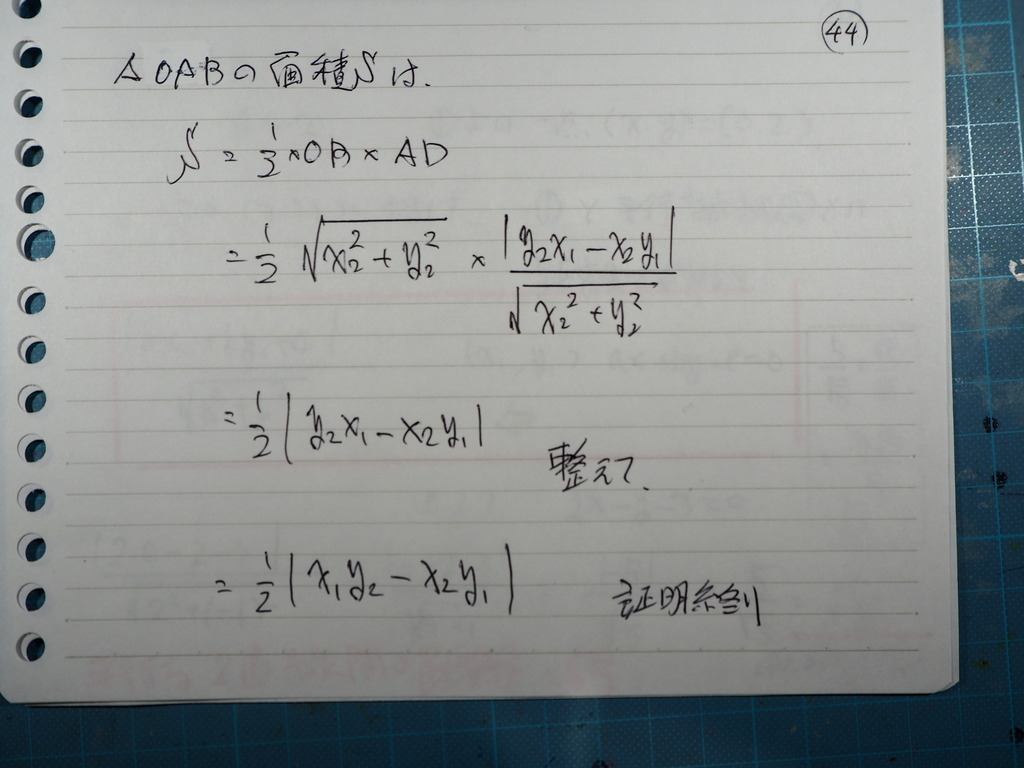 44
△OABの面積Sは.
S = 1/2 × OB × AD
= 1/2 √(x₂² + y₂²) × |y₂x₁ − x₂y₁| / √(x₂² + y₂²)
= 1/2 |y₂x₁ − x₂y₁|
整えて.
= 1/2 |x₁y₂ − x₂y₁| 証明終り